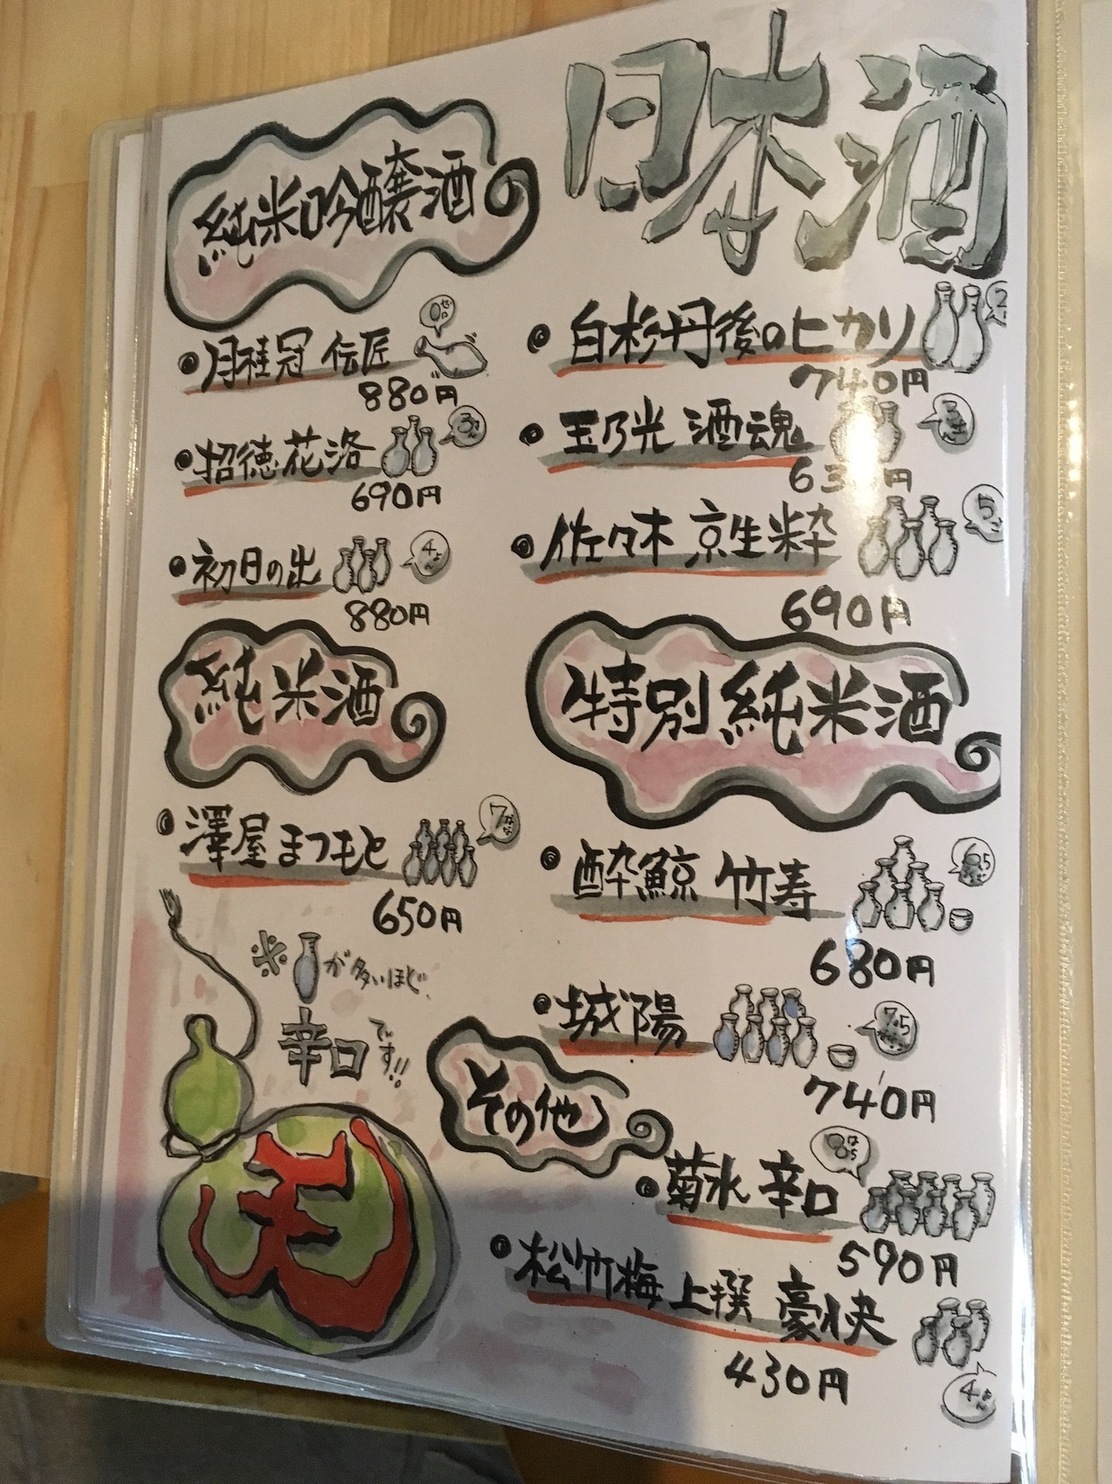 日本酒
純米吟醸酒
白杉丹後のヒカリ
740円
玉乃光 酒魂
佐々木 京生粋
5
690円
月桂冠 伝匠
880円
招徳花洛
690円
初日の出
4
880円
特別純米酒
酔鯨 竹寿
680円
城陽
7.5
740円
純米酒
澤屋まつもと
7
650円
※が多いほど、
辛口です!!
その他
菊水 辛口
590円
松竹梅 上撰 豪快
430円
4